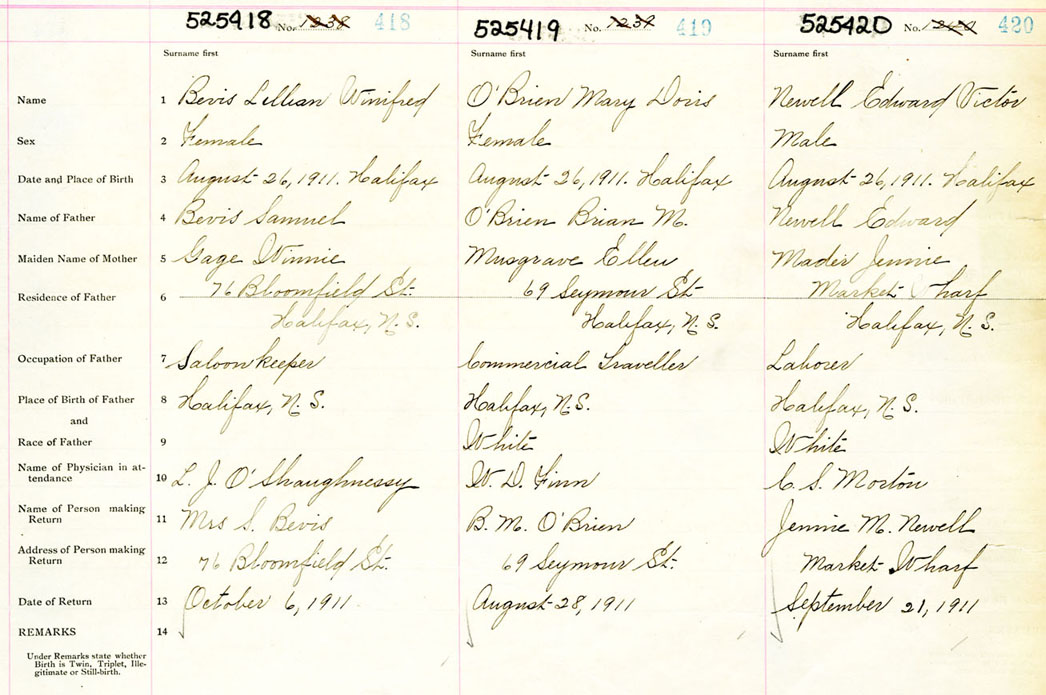 525418 No. 1238 418 525419 No. 1239 419 525420 No. 420
Surname first Surname first Surname first
Name 1 Bevis Lillian Winifred O'Brien Mary Doris Newell Edward Victor
Sex 2 Female Female Male
Date and Place of Birth 3 August 26, 1911. Halifax August 26, 1911. Halifax August 26, 1911. Halifax
Name of Father 4 Bevis Samuel O'Brien Brian M. Newell Edward
Maiden Name of Mother 5 Gage Winnie Musgrave Ellen Mader Jennie
Residence of Father 6 76 Bloomfield St. 69 Seymour St Market Wharf
Halifax, N.S. Halifax, N.S. Halifax, N.S.
Occupation of Father 7 Saloon keeper Commercial Traveller Laborer
Place of Birth of Father 8 Halifax, N.S. Halifax, N.S. Halifax, N.S.
and
Race of Father 9 White White
Name of Physician in at-
tendance 10 L. J. O'Shaughnessy W. D. Finn C. S. Morton
Name of Person making
Return 11 Mrs S. Bevis B. M. O'Brien Jennie M. Newell
Address of Person making
Return 12 76 Bloomfield St. 69 Seymour St. Market Wharf
Date of Return 13 October 6, 1911 August 28, 1911 September 21, 1911
REMARKS 14
Under Remarks state whether
Birth is Twin, Triplet, Ille-
gitimate or Still-birth.